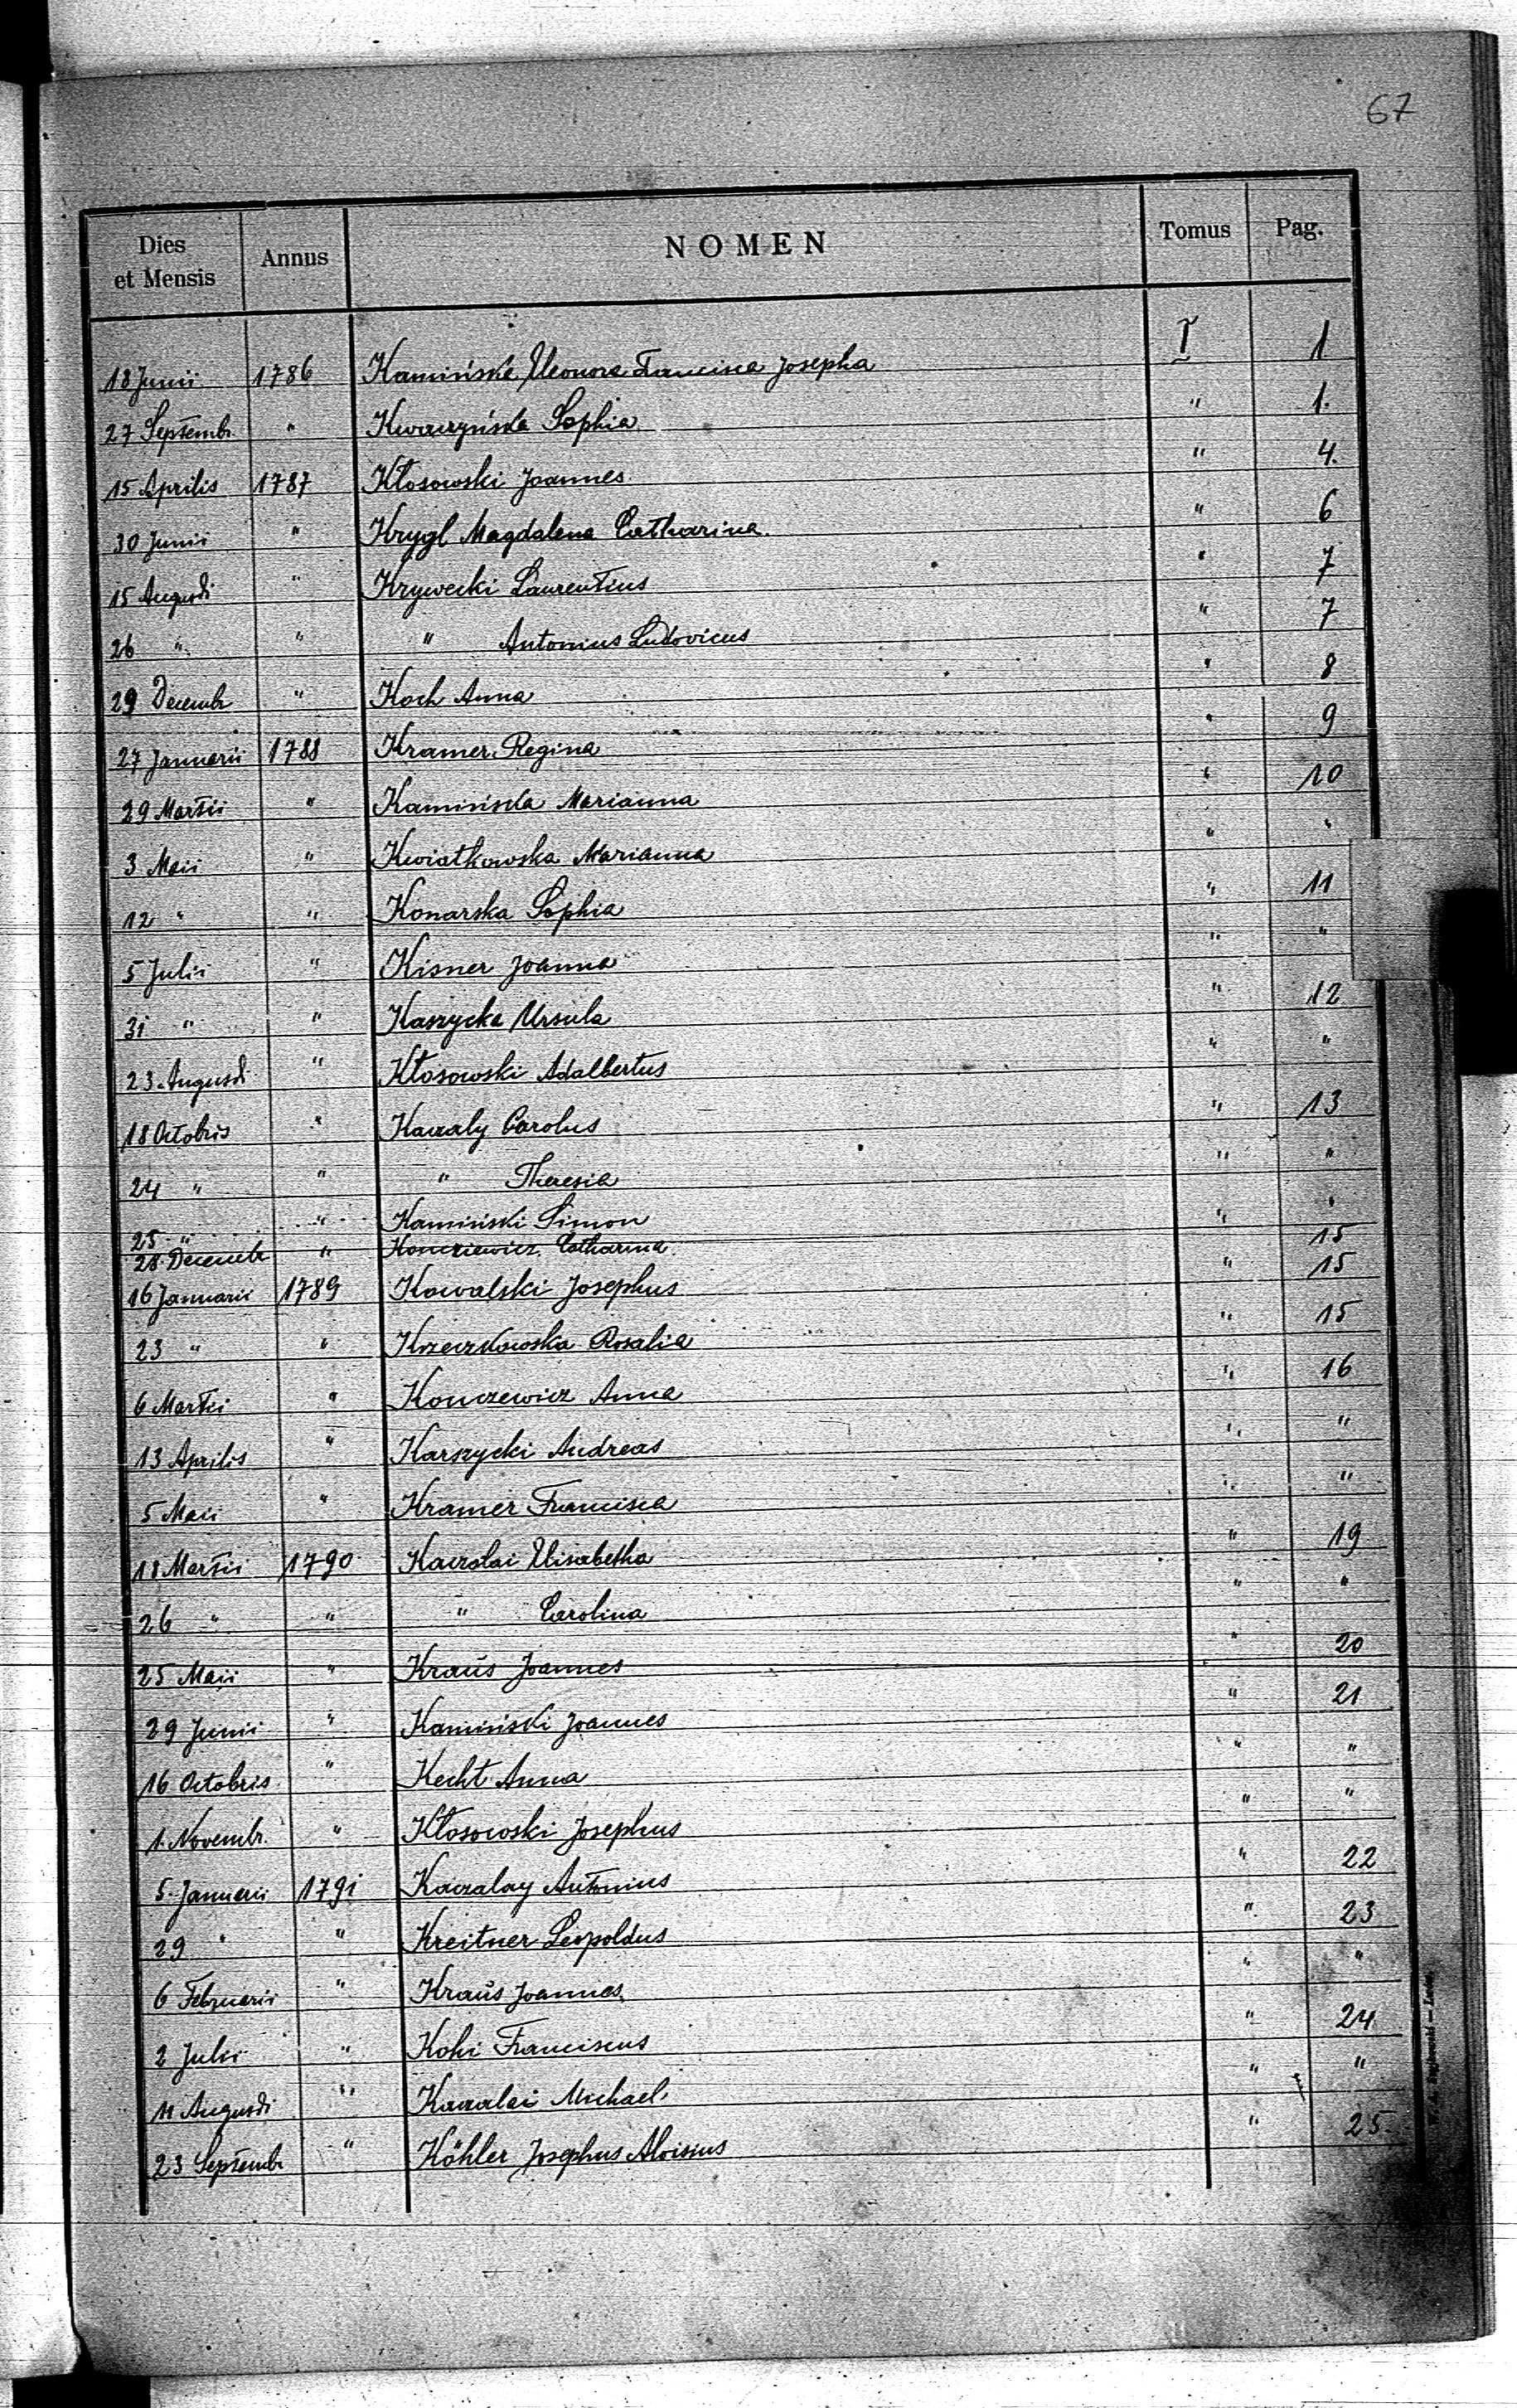 67
Dies et Mensis Annus NOMEN Tomus Pag.
18 Junii 1786 Kamińska Eleonora Francisca Josepha I 1
27 Septembr. " Kwaczyńska Sophia " 1.
15 Aprilis 1787 Kłosowski Joannes " 4.
30 Junii " Krygl Magdalena Catharina. " 6
15 Augusti " Krywecki Laurentius " 7
26 " " " Antonius Ludovicus " 7
29 Decembr " Koch Anna " 8
27 Januarii 1788 Kramer Regina " 9
29 Martii " Kamińska Marianna " 10
3 Maii " Kwiatkowska Marianna " "
12 " " Konarska Sophia " 11
5 Julii " Kisner Joanna " "
31 " " Kaszycka Ursula " 12
23 Augusti " Kłosowski Adalbertus " "
18 Octobris " Kaczaly Carolus " 13
24 " " " Theresia " "
25 " " Kamiński Simon " "
28 Decembr " Konciewicz Catharina 15
16 Januarii 1789 Kowalski Josephus " 15
23 " " Krzeczkowska Rosalia " 15
6 Martii " Konczewicz Anna " 16
13 Aprilis " Karszycki Andreas " "
5 Maii " Kramer Francisca " "
18 Martii 1790 Kaczalai Elisabetha " 19
26 " " " Carolina " "
25 Maii " Kraŭs Joannes " 20
29 Junii " Kamiński Joannes " 21
16 Octobris " Kecht Anna " "
1. Novembr. " Kłosowski Josephus " "
5. Januarii 1791 Kaczalay Antonius " 22
29 " " Kreitner Leopoldus " 23
6 Februarii " Kraŭs Joannes " "
2 Julii " Kohi Franciscus " 24
11 Augusti " Kaczalai Michael " "
23 Septembr " Köhler Josephus Aloisius " 25